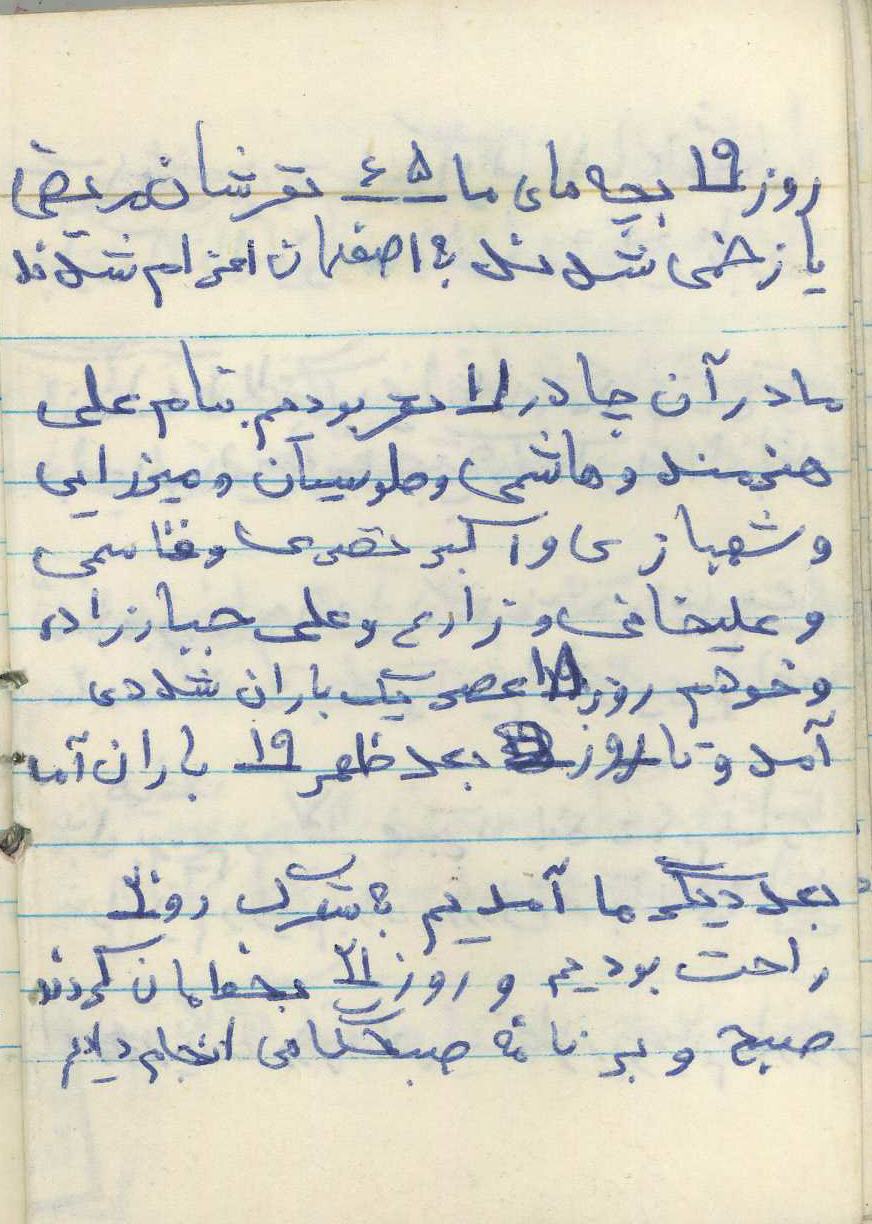 روز ۱۹ بچه های ما ۵ ۶ نفرشان مریض
یا زخمی شدند به اصفهان اعزام شدند
ما در آن چادر نفر بودیم بنام علی
هنرمند و هاشمی و طوسیان و میرزایی
و شهبازی و اکبر نصری و قاسمی
و علیخانی و زارع و علی جبارزاده
و خودم روز ۱۸ عصر یک باران شددی
آمد و تا روز بعد ظهر ۱۹ باران آمد
بعد دیگر ما آمدیم به شهرک روز
راحت بودیم و روز ۲۱ بخطمان کردند
صبح و برنامه صبحگاهی انجام دادیم